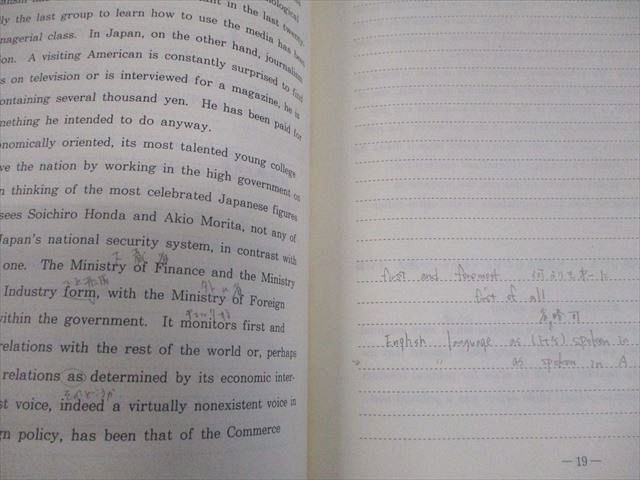 nological
ant in the last twenty-
ly the last group to learn how to use the media has been
nagerial class. In Japan, on the other hand, journalism
ion. A visiting American is constantly surprised to find
s on television or is interviewed for a magazine, he is
ontaining several thousand yen. He has been paid for
mething he intended to do anyway.
onomically oriented, its most talented young college
ve the nation by working in the high government or
n thinking of the most celebrated Japanese figures
sees Soichiro Honda and Akio Morita, not any of
Japan's national security system, in contrast with
one. The Ministry of Finance and the Ministry
Industry form, with the Ministry of Foreign
within the government. It monitors first and
relations with the rest of the world or, perhaps
relations as determined by its economic inter-
st voice, indeed a virtually nonexistent voice in
gn policy, has been that of the Commerce
first and foremost 何よりもまず
first of all
English language as (it is) spoken in
〃 as spoken in A
—19—